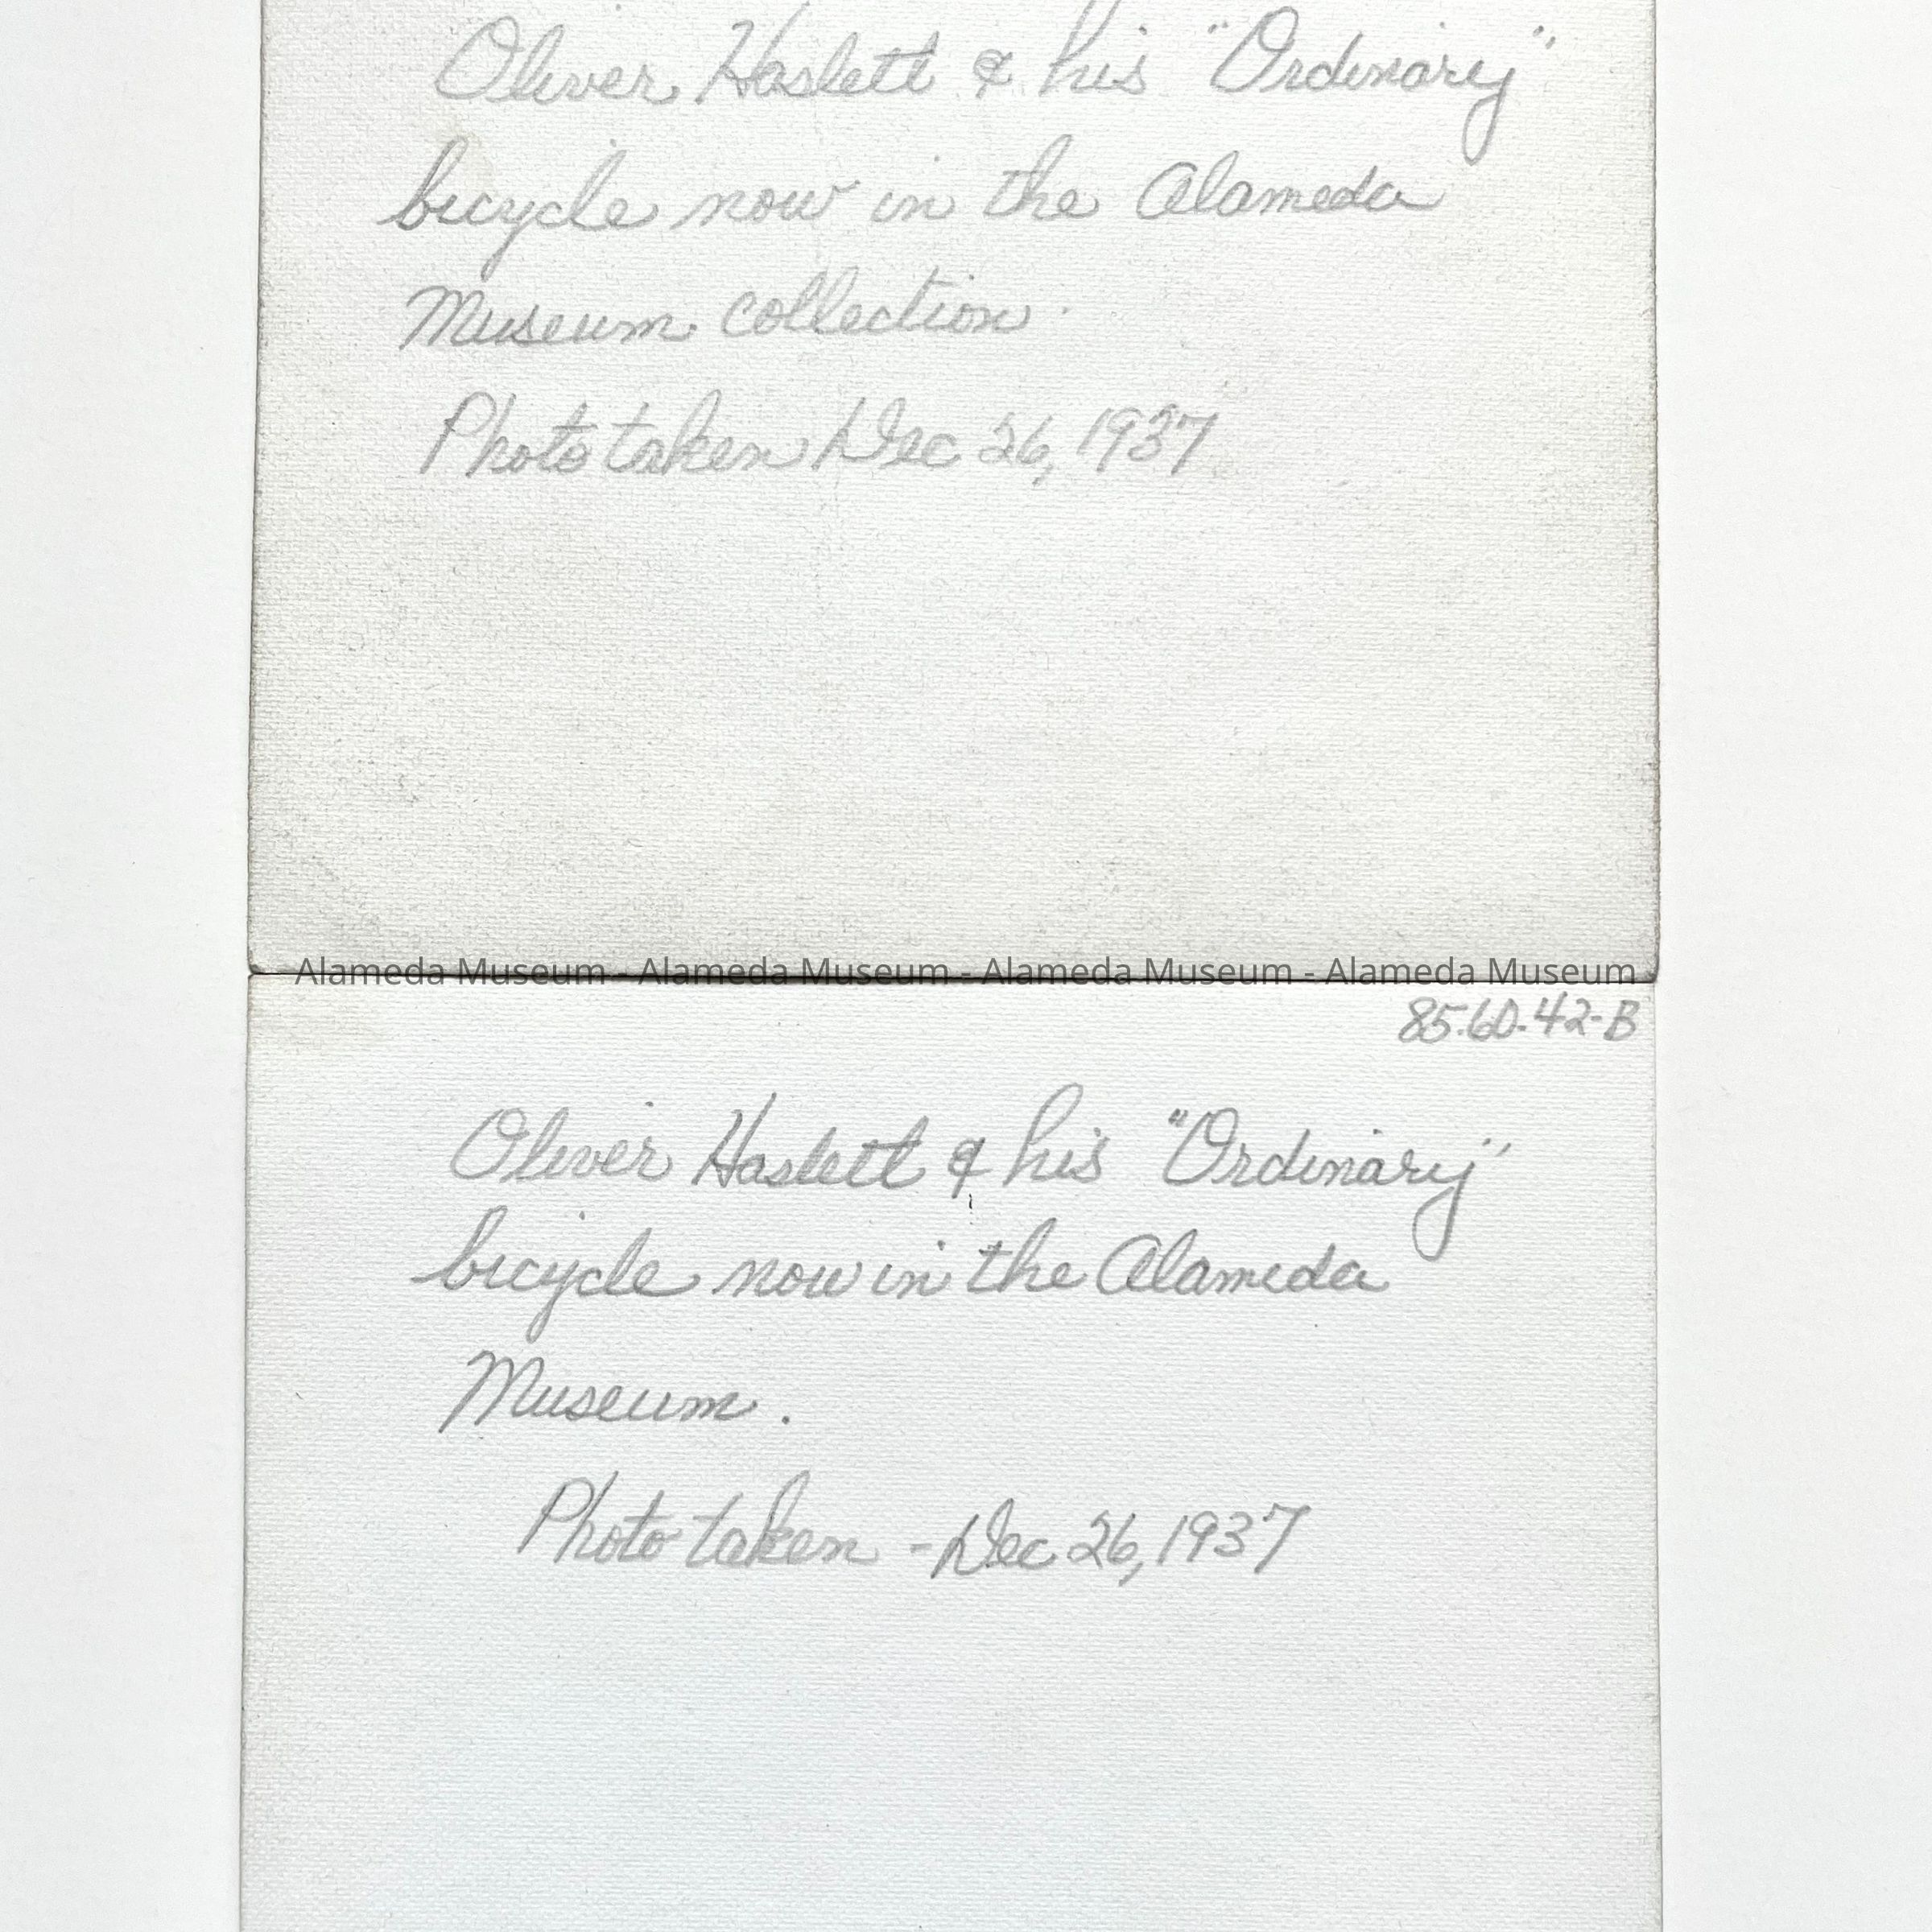 Oliver Haslett & his "Ordinary"
bicycle now in the Alameda
Museum collection.
Photo taken Dec 26, 1937
Alameda Museum - Alameda Museum - Alameda Museum - Alameda Museum
85.60.42-B
Oliver Haslett & his "Ordinary"
bicycle now in the Alameda
Museum.
Photo taken - Dec 26, 1937